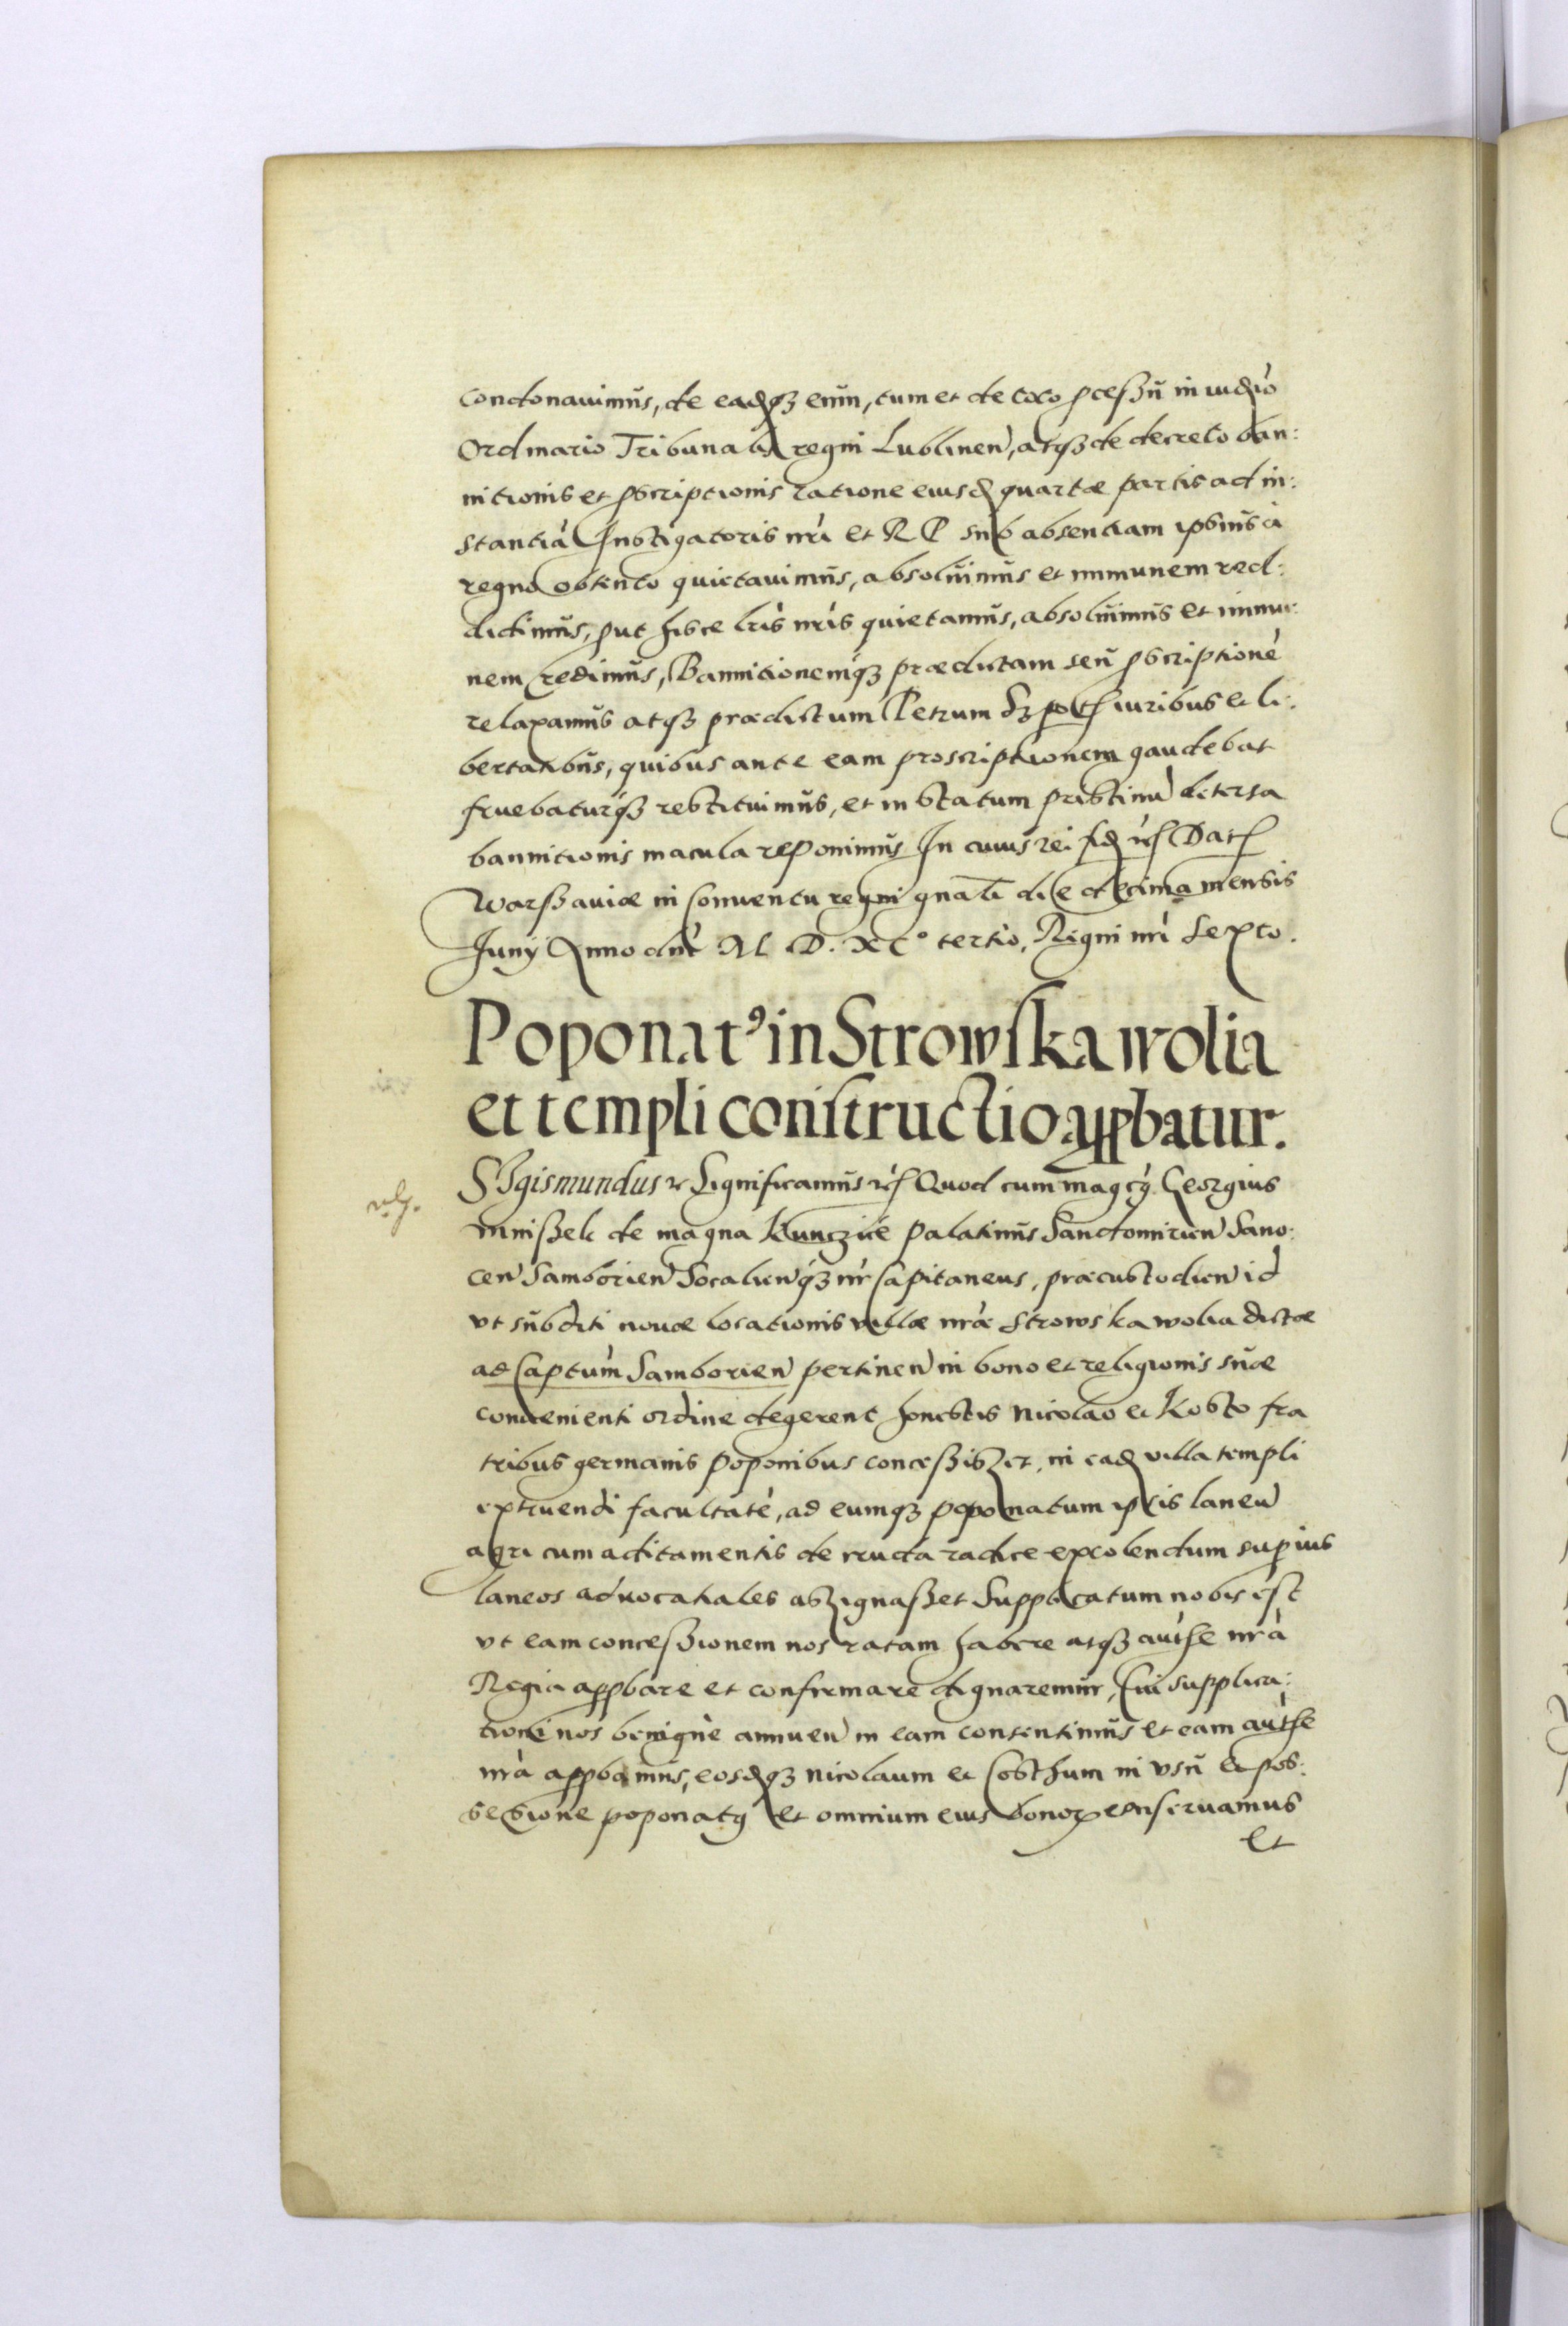 condonavimus, de eadqz eum, tum et de toto pcessu in iudio
Ordinario Tribunalis regni Lublinen, atqz de decreto ban:
nitionis et pscriptionis ratione eiusd quartæ partis ad in:
stantiã Instigatoris nri et R P sub absentiam ipsius à
regno obtento quietavimus, absolvimus et immunem red:
didimus, put hisce lris nris quietamus, absolvimus et immu:
nem redimus, Bannitionemqz prædictam seu pscriptionẽ
relaxamus atqz prædictum Petrum iuribus et li:
bertatibus, quibus ante eam proscriptionem gaudebat
fruebaturqz restituimus, et in statum pristinũ detersa
bannitionis macula reponimus In cuius rei fid rc Dat
Warssaviæ in Conventu regni gnali die decima mensis
Juny Anno dni M. D. XC° tertio, Regni nri Sexto.
Poponat9 in Strowska wolia
et templi constructio appbatur.
Sigismundus rc Significamus rc Quod cum magcus Georgius
Mnissek de magna Kunczice Palatinus Sandomirien Sano:
cen Samborien Socalienqz nr Capitaneus, præcustodien id
vt subditi novæ locationis villæ nræ Strowska wolia dictæ
ad Captum Samborien pertinen in bono et religionis suæ
convenienti ordine degerent honestis Nicolao et Kosto fra
tribus germanis poponibus concessisset, in ead villa templi
extruendi facultatẽ, ad eumqz poponatum ipsis laneũ
agri cum aditamentis de cruda radice excolendum superius
laneos advocatiales assignasset Supplicatum nobis est
vt eam concessionem nos ratam habere atqz authe nrã
Regia appbare et confirmare dignaremur, Cui supplica:
tioni nos benignè annuen in eam consentimus et eam authe
nrã appbamus, eosdqz Nicolaum et Costhum in usu et pos:
sessione poponatus et omnium eius bonorum conservamus
Et